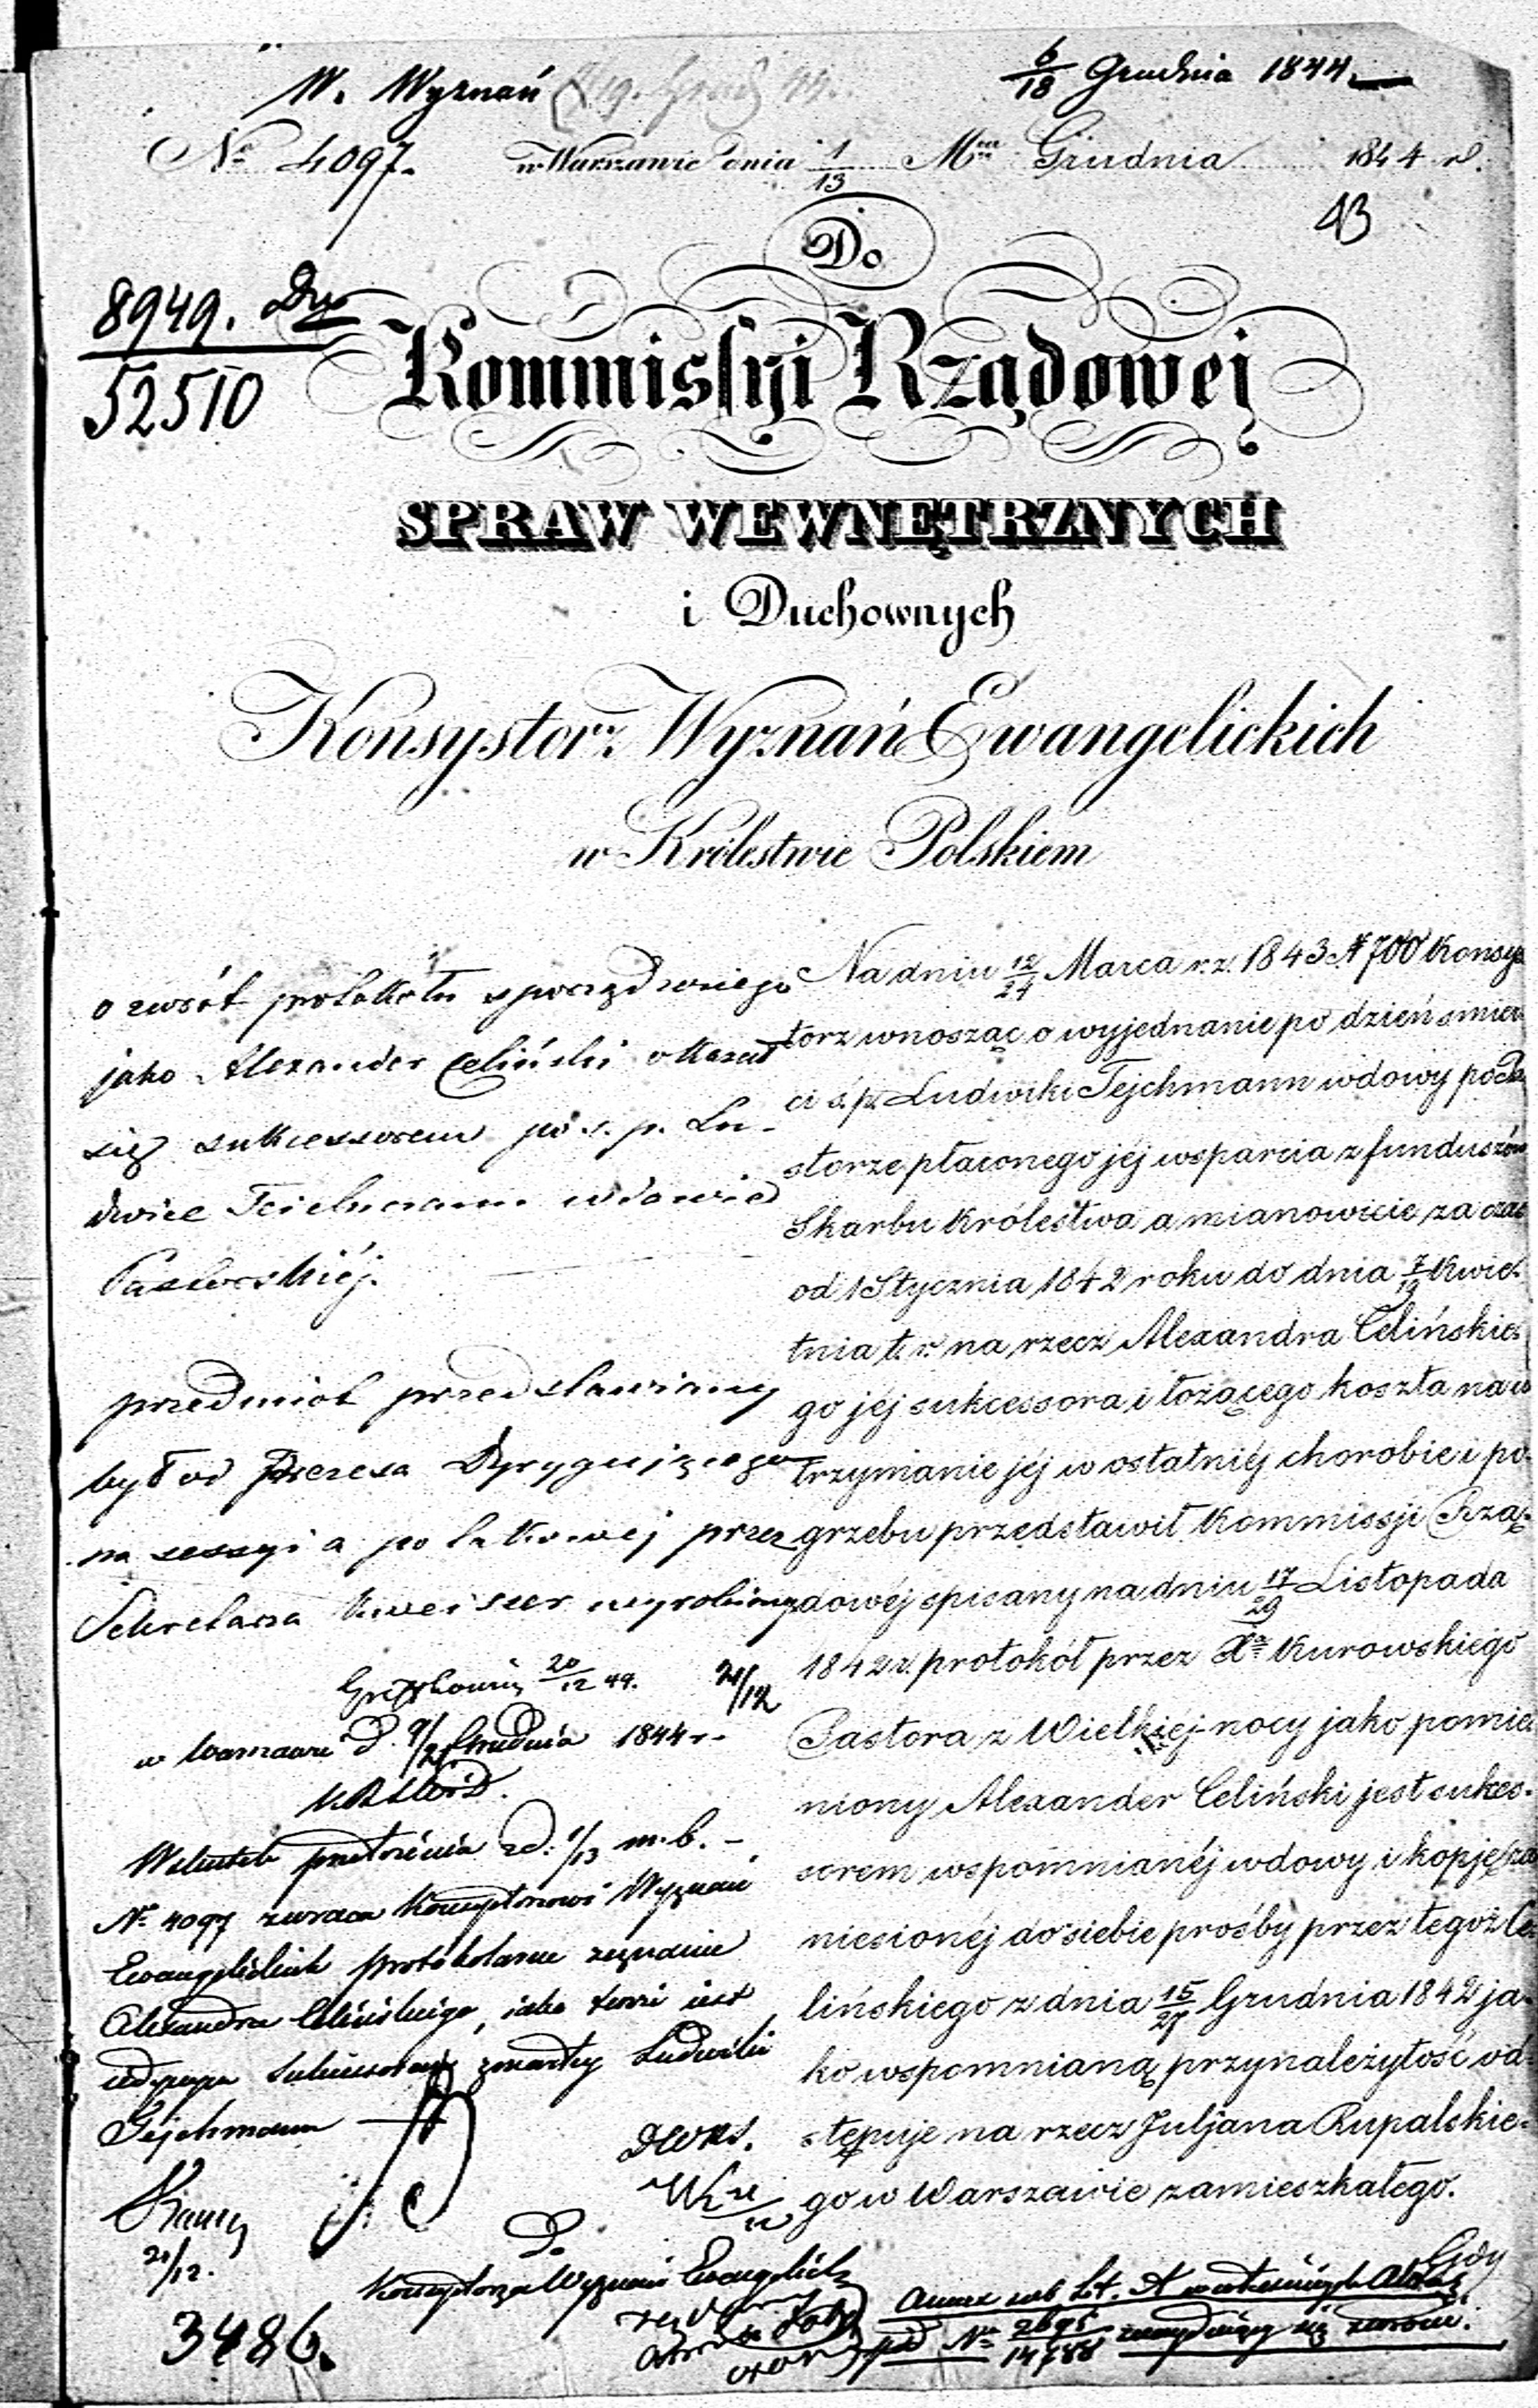 W. Wyznań
6/18 Grudnia 1844.
No 4097. w Warszawie dnia 1/13 Mca Grudnia 1844 r.
43
Do
8949.
52510
Kommissyi Rządowej
SPRAW WEWNĘTRZNYCH
i Duchownych
Konsystorz Wyznań Ewangelickich
w Królestwie Polskiem
o zwrot protokołu sporządzonego
jako Alexander Celiński okazał
się sukcessorem po ś. p. Lu-
dwice Teichmann wdowie
Pastorskiéj.
przedmiot przedstawiony
był od Prezesa Dyrygującego
na sessyi a po takowej przez
Sekretarza wyrobiony
20/12 44.
21/12
w Warszawie d. 9/21 Grudnia 1844 r.
K.R.S.W.i D.
W skutek przełożenia z d. 1/13 m. b.
No 4097 zwraca Konsystorzowi Wyznań
Ewangelickich protokolarne zeznanie
Alexandra Celińskiego, jako tenże jest
sukcessorem zmarłej Ludwiki
Tejchmann
21/12.
Do
Konsystorza Wyznań Ewangelick
3486.
Na dniu 12/24 Marca r.z. 1843 N 700 Konsys
torz wnosząc o wyjednanie po dzień śmier
ci ś.p. Ludwiki Tejchmann wdowy po Pa
storze płaconego jéj wsparcia z funduszów
Skarbu Królestwa a mianowicie za czas
od 1 Stycznia 1842 roku do dnia 7/19 Kwie-
tnia t. r. na rzecz Alexandra Celińskie-
go jéj sukcessora i łożącego koszta na u
trzymanie jéj w ostatniéj chorobie i po-
grzebu przedstawił Kommissji Rzą-
dowéj spisany na dniu 17/29 Listopada
1842 r. protokół przez Xa Kurowskiego
Pastora z Wielkiej-nocy jako pomie
niony Alexander Celiński jest sukces-
sorem wspomnianéj wdowy i kopję za
niesionéj do siebie prośby przez tegoż Ce
lińskiego z dnia 15/27 Grudnia 1842 ja-
ko wspomnianą przynależytość od
stępuje na rzecz Juljana Rupalskie-
go w Warszawie zamieszkałego.
Gdy
Annex sub Lit. A
pod No 2695/14788 znajdujący się zwrócić.